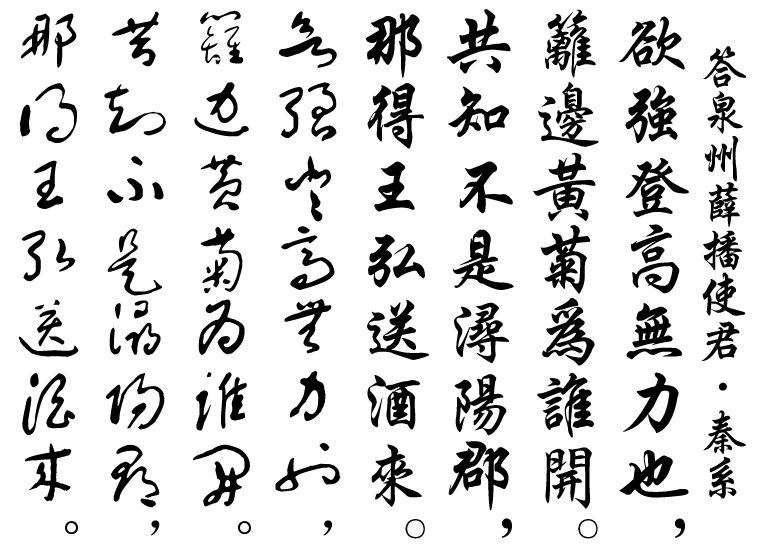 答泉州薛播使君・秦系
欲強登高無力也，
籬邊黃菊為誰開。
共知不是潯陽郡，
那得王弘送酒來。
欲強登高無力也，
籬邊黃菊為誰開。
共知不是潯陽郡，
那得王弘送酒來。